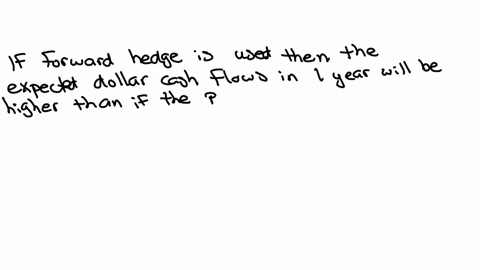 If forward hedge is used then the
expected dollar cash flows in 1 year will be
higher than if the P